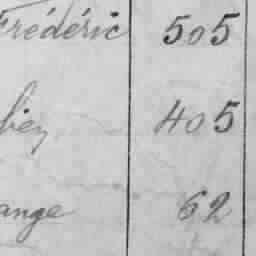 Frédéric 505
bien 405
ange 62